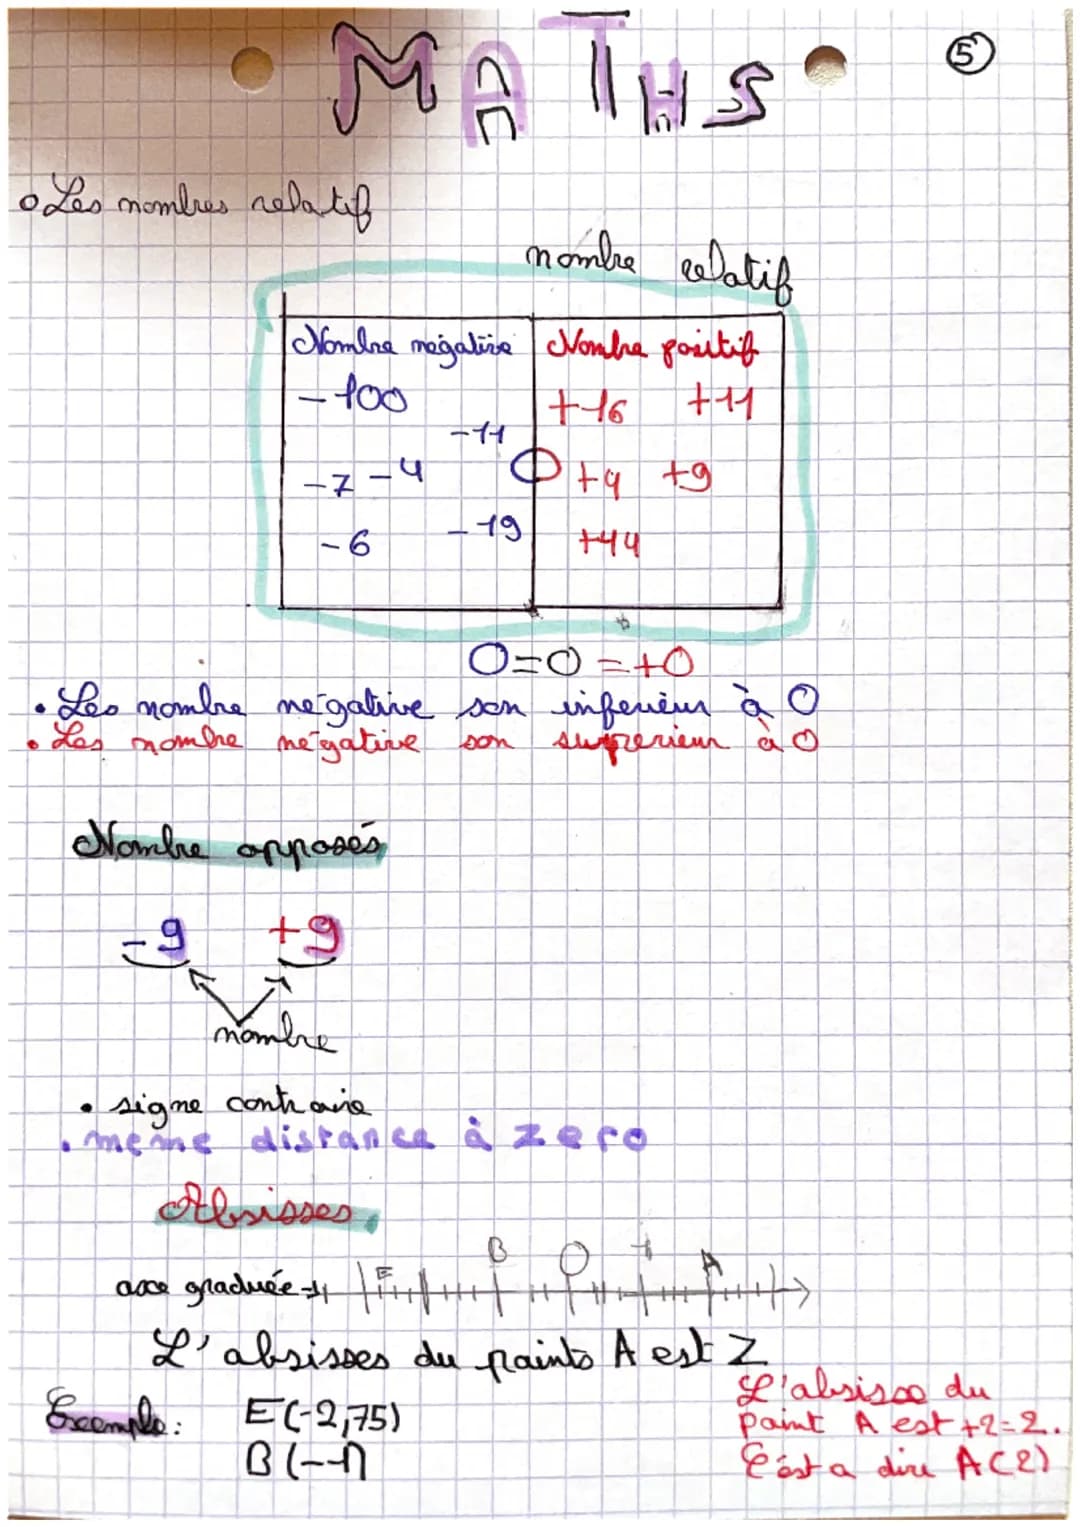 MATHS
5
Les nombres relatif
nombre relatif
Nombre négative
Nombre positif
-100
+16 +11
-11
-7 -4
0
+4 +9
-6 -19
+44
0=0=+0
• Les nombre négative son inferieur à 0
• Les nombre négative son supperieur à 0
Nombre opposés
-9 +9
nombre
• signe contraire
• meme distance à zero
Absisses
B O 1
E A
axe graduée
L'absisses du points A est 2
L'absisse du
Exemple: E(-2,75)
point A est +2=2.
B(--1)
C'est a dire A(2)